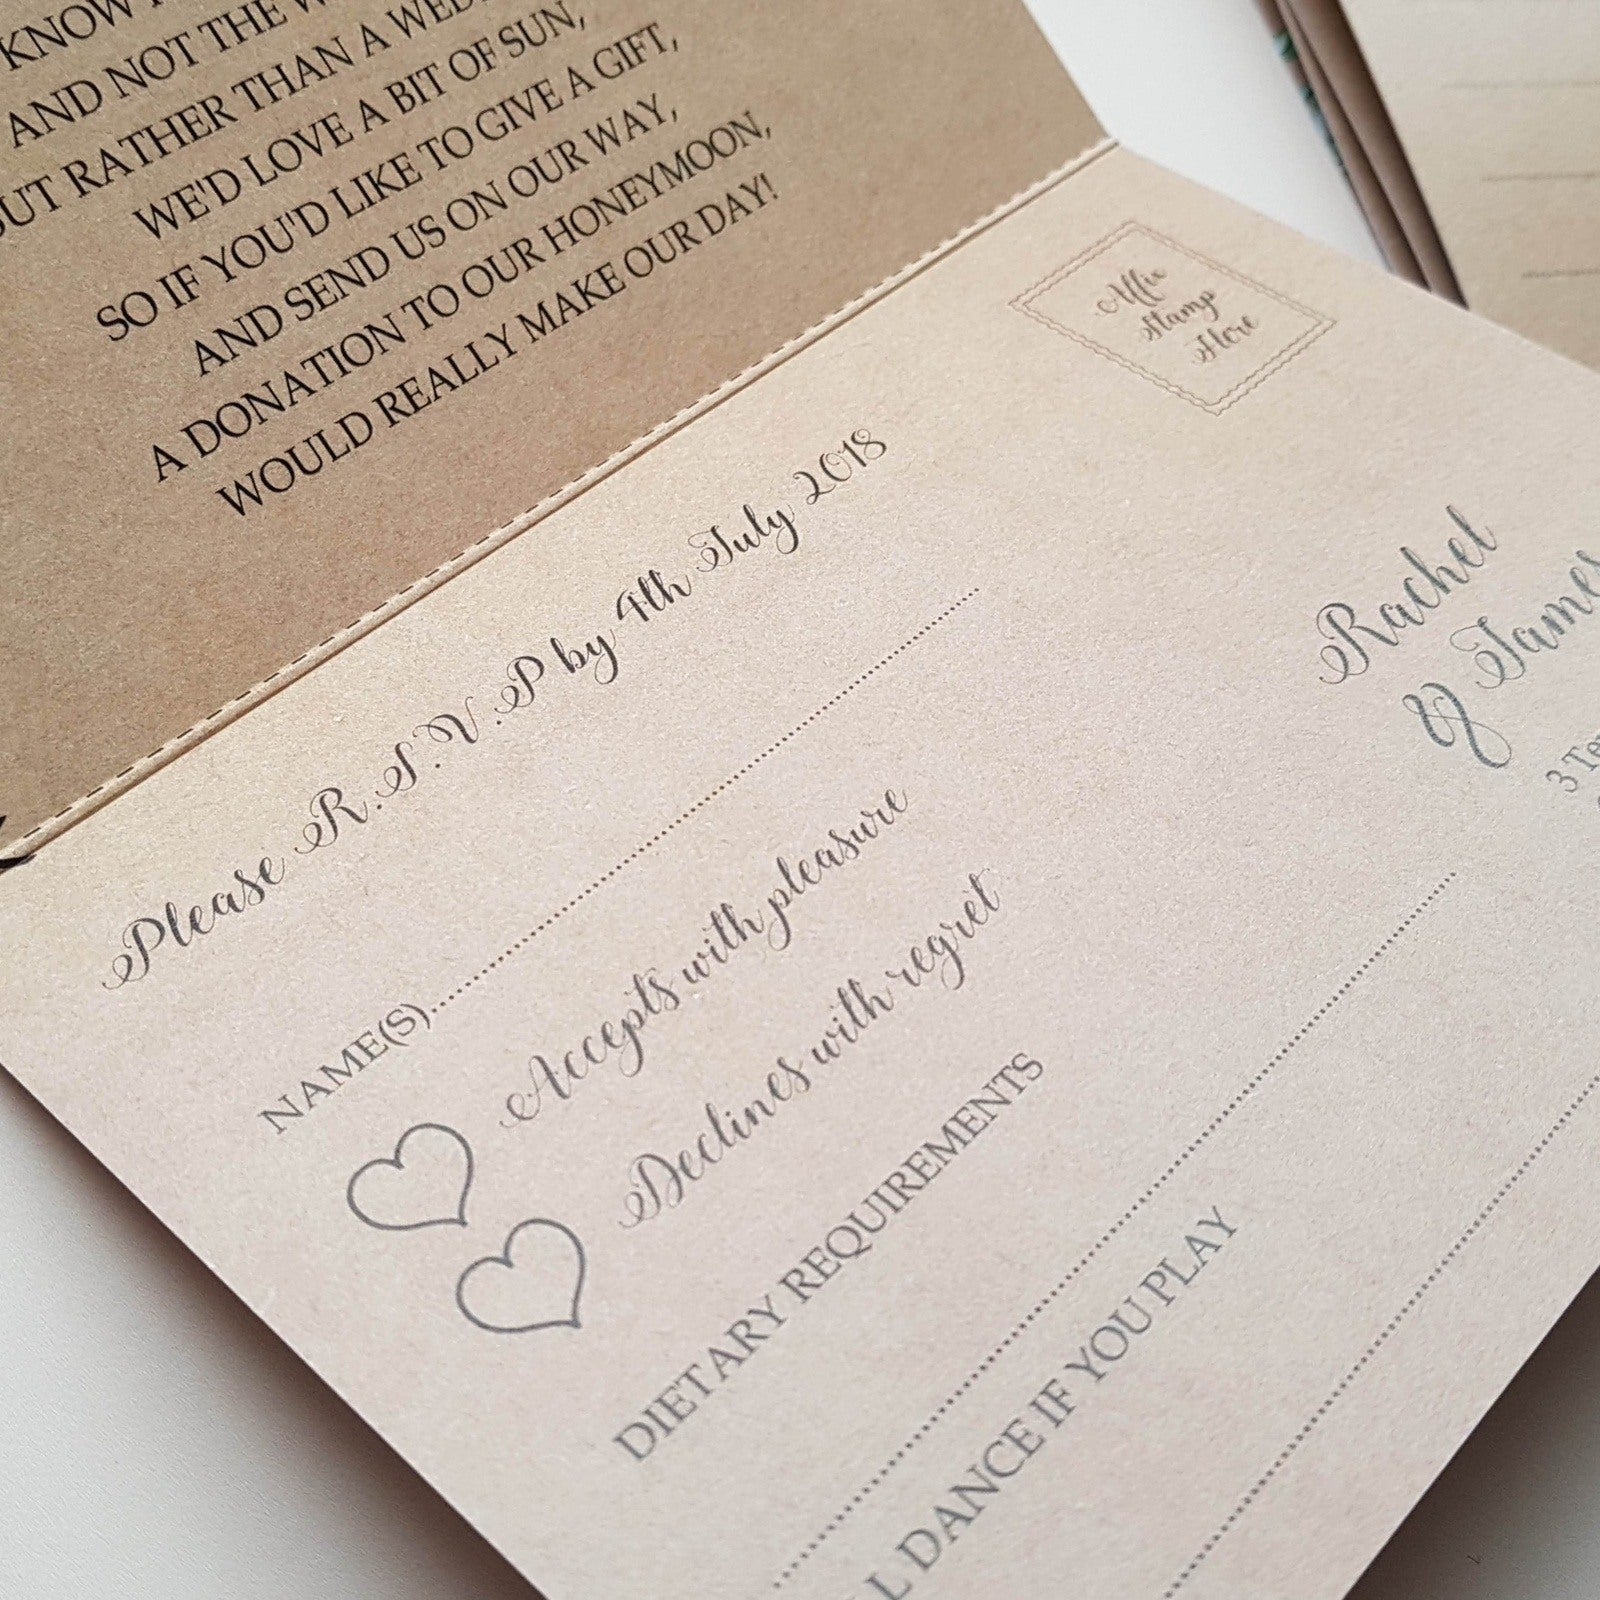 KNOW
AND NOT THE
BUT RATHER THAN A WED
WE'D LOVE A BIT OF SUN,
SO IF YOU'D LIKE TO GIVE A GIFT,
AND SEND US ON OUR WAY,
A DONATION TO OUR HONEYMOON,
WOULD REALLY MAKE OUR DAY!
Affix
Stamp
Here
Please R.S.V.P by 4th July 2018
NAME(S)
Accepts with pleasure
Declines with regret
DIETARY REQUIREMENTS
L DANCE IF YOU PLAY
Rachel
& James
3